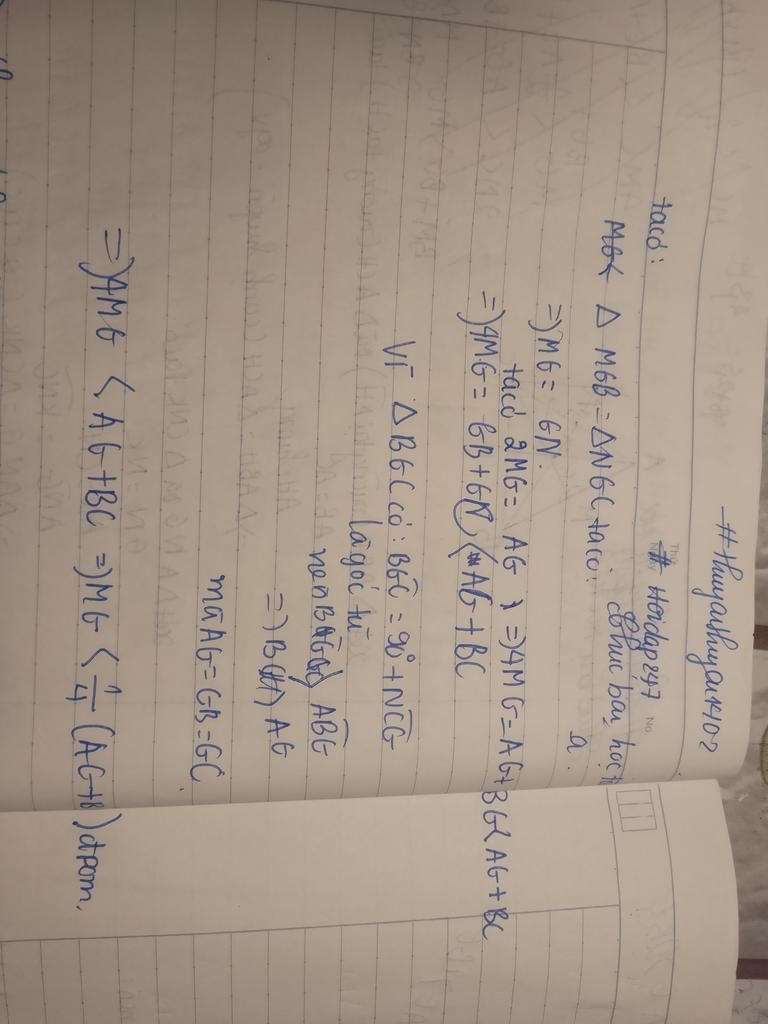 # thuyaithuyaik102
# Hoidap247
No.
chúc bạn học
ạ.
ta có:
MG< Δ MGB = ΔNGC ta có:
=) MG = GN.
ta có 2MG = AG ) =) 4MG = AG + BG < AG + BC
=) 4MG = GB + GN < AG + BC
Vì Δ BGC có: BGC = 90° + NCG
là góc tù
nên ABG
=) BC > AG
mà AG = GB = GC
=) 4MG < AG + BC =) MG < 1/4 (AG + B) đpcm.